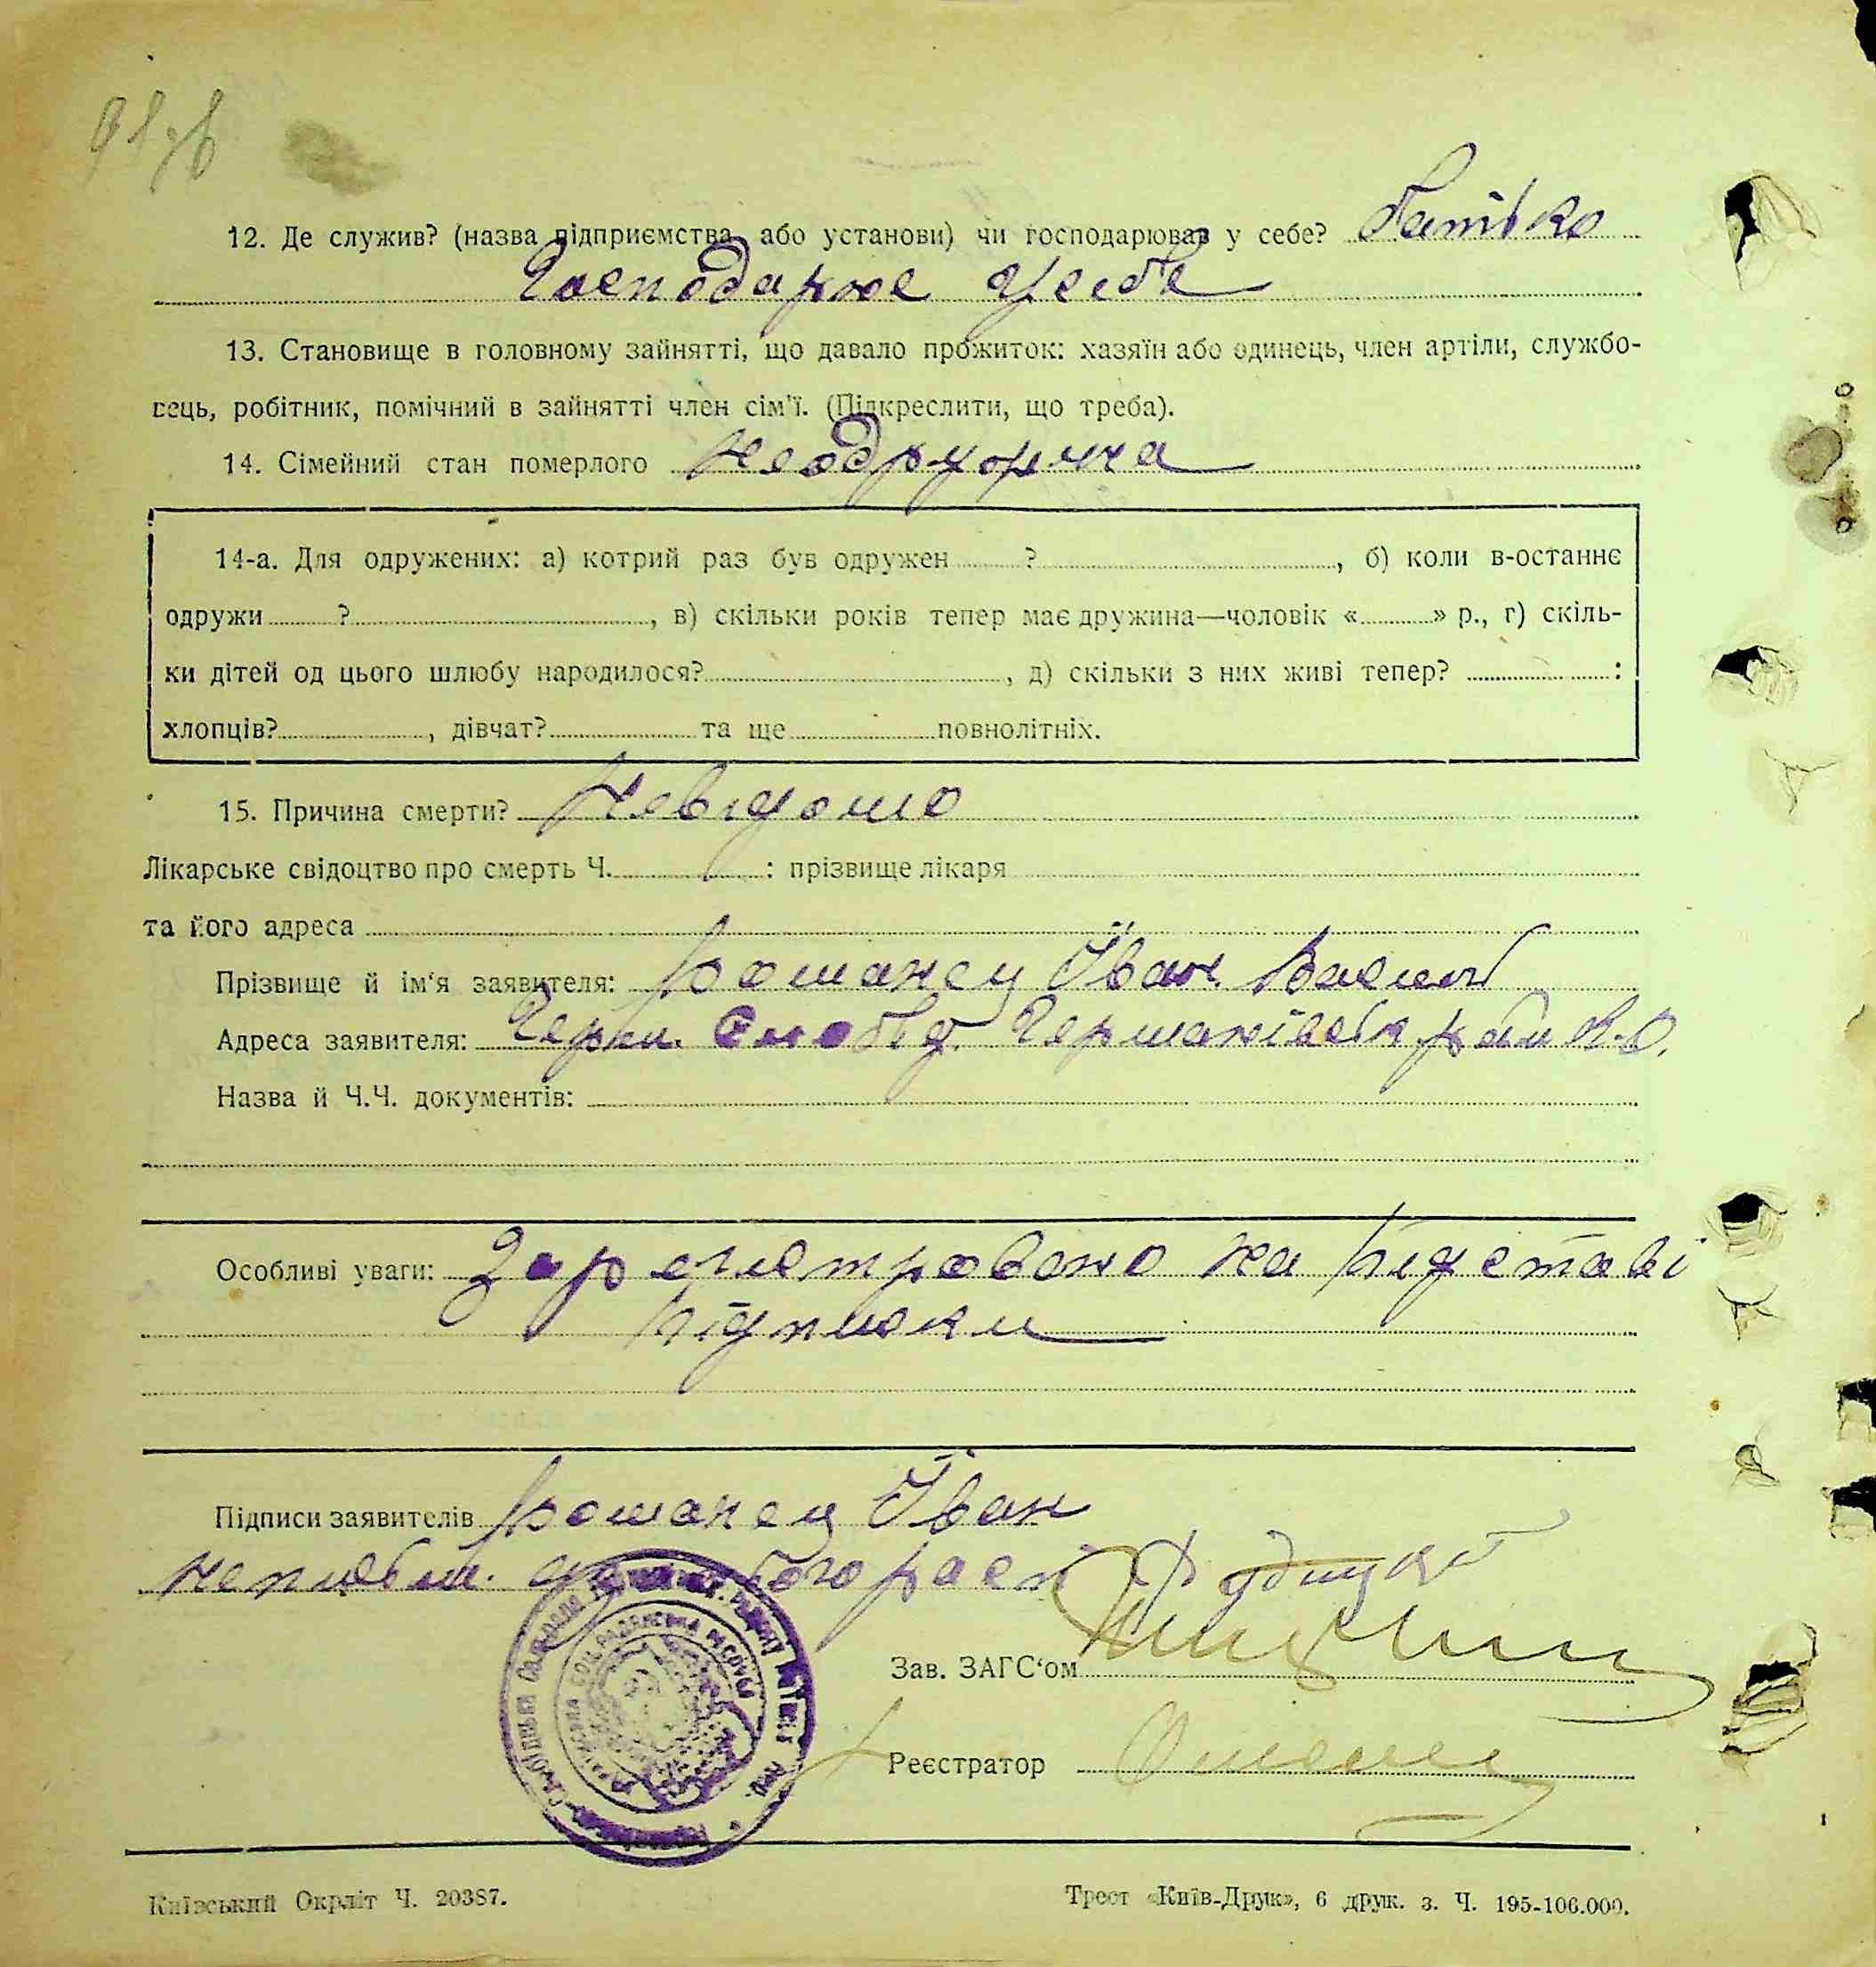 12. Де служив? (назва підприємства або установи) чи господарював у себе? батько
Господарює у себе
13. Становище в головному зайнятті, що давало прожиток: хазяїн або одинець, член артіли, службо-
вець, робітник, помічний в зайнятті член сім'ї. (Підкреслити, що треба).
14. Сімейний стан померлого неодружена
14-а. Для одружених: а) котрий раз був одружен ? , б) коли в-останнє
одружи ? , в) скільки років тепер має дружина—чоловік « » р., г) скіль-
ки дітей од цього шлюбу народилося? , д) скільки з них живі тепер? :
хлопців? , дівчат? та ще повнолітніх.
15. Причина смерти? Невідомо
Лікарське свідоцтво про смерть Ч. : прізвище лікаря
та його адреса
Прізвище й ім'я заявителя: Романец Іван Васил
Адреса заявителя: Герм. Слобід. Германівськ рай К.О.
Назва й Ч.Ч. документів:
Особливі уваги: Зарегистровано на підставі
підписки
Підписи заявителів Романец Іван
неписьм.
Зав. ЗАГС'ом
Реєстратор
Київський Окрліт Ч. 20387.
Трест «Київ-Друк», 6 друк. з. Ч. 195-106.000.